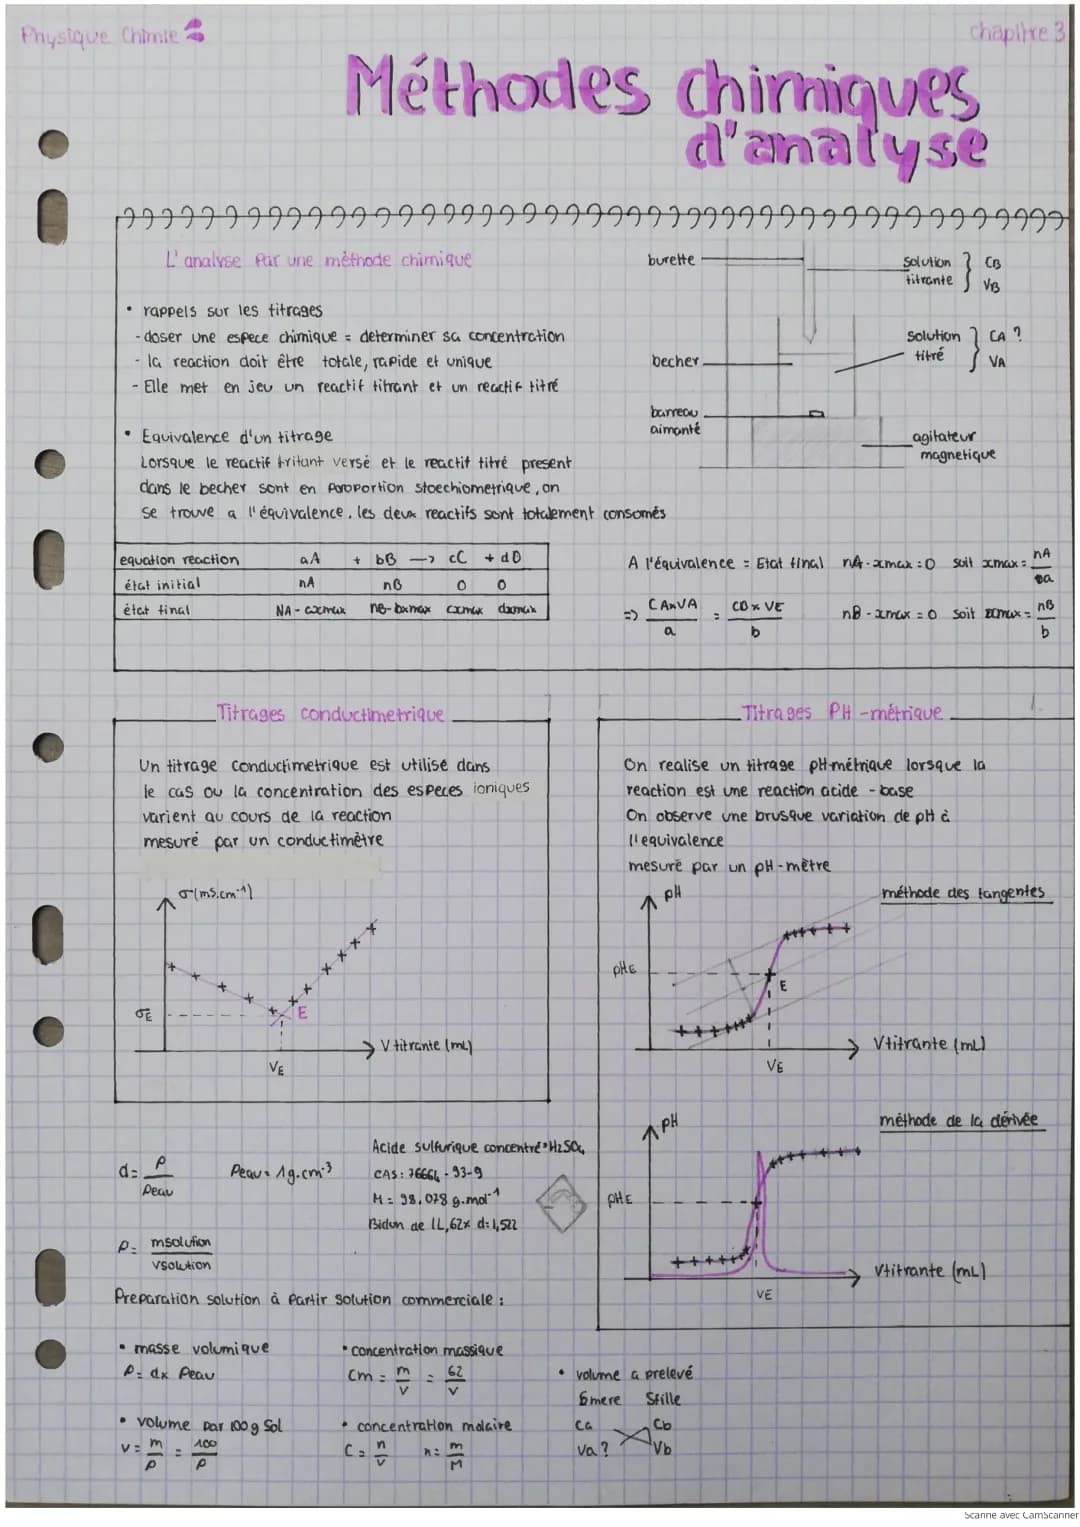 Physique Chimie
chapitre 3
Méthodes chimiques
d'analyse
L'analyse par une méthode chimique
• rappels sur les titrages
- doser une espece chimique = determiner sa concentration
- la reaction doit être totale, rapide et unique
- Elle met en jeu un reactif titrant et un reactif titré
• Equivalence d'un titrage
Lorsque le reactif tritant versé et le reactif titré present
dans le becher sont en poroportion stoechiometrique, on
se trouve a l'équivalence. les deux reactifs sont totalement consomés
burette
becher
barreau
aimanté
solution
titrante
CB
VB
solution
titré
CA ?
VA
agitateur
magnetique
equation reaction aA + bB → cC + dD
état initial nA nB 0 0
état final NA - axmax nB - bxmax cxmax dxmax
A l'équivalence = Etat final nA - xmax = 0 soit xmax = nA
a
=> CA×VA = CB × VE
a b
nB - xmax = 0 soit xmax = nB
b
Titrages conductimetrique
Un titrage conductimetrique est utilisé dans
le cas ou la concentration des especes ioniques
varient au cours de la reaction
mesuré par un conductimètre
σ (mS.cm⁻¹)
σE
E
VE
V titrante (mL)
Titrages PH - métrique
On realise un titrage pH-métrique lorsque la
reaction est une reaction acide - base
On observe une brusque variation de pH à
l'equivalence
mesuré par un pH - mètre
pH
méthode des tangentes
pHE
E
VE
Vtitrante (mL)
pH
méthode de la dérivée
pHE
VE
Vtitrante (mL)
d = ρ
ρeau
ρeau = 1g.cm⁻³
ρ = msolution
vsolution
Acide sulfurique concentré H2SO4
CAS : 76664 - 93-9
M = 98.078 g.mol⁻¹
Bidon de 1L, 62% d = 1,522
Preparation solution à partir solution commerciale :
• masse volumique
ρ = d× ρeau
• concentration massique
Cm = m = 62
v v
• volume par 100 g sol
v = m = 100
ρ ρ
• concentration molaire
C = n n = m
v M
• volume a prelevé
Smere Sfille
Ca Cb
Va ? Vb
Scanné avec CamScanner